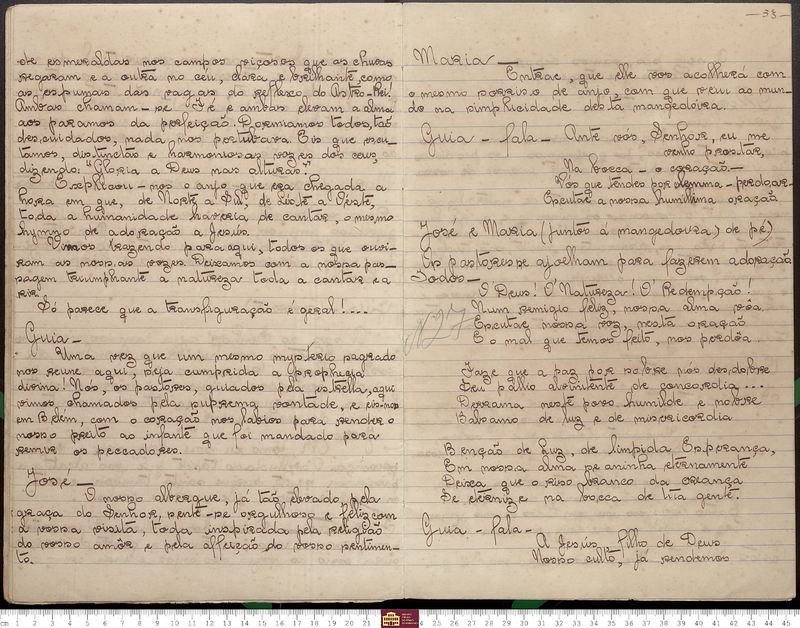 de esmeraldas nos campos viçosos que as chuvas
regaram e a outra no céu, clara e brilhante, como
as espumas das vagas do reflexo do Astro-Rei.
Ambas chamam-se Fé e ambas elevam a alma
aos paramos da perfeição. Dormiamos todos, tão
descuidados, nada nos perturbava. Eis que escu-
tamos, distinctas e harmoniosas vozes dos ceus,
dizendo: "Gloria a Deus nas alturas".
Explicou-nos o anjo que era chegada a
hora em que, de Norte a Sul, de Léste a Oéste,
toda a humanidade haveria de cantar, o mesmo
hymno de adoração a Jesús.
Vimos trazendo para aqui, todos os que ouvi-
ram as nossas vozes. Deixamos com a nossa pas-
sagem triumphante a natureza toda a cantar e a
rir.
Só parece que a transfiguração é geral!...
Guia-
Uma vez que um mesmo mysterio sagrado
nos reune aqui, seja cumprida a prophecia
divina! Nós, os pastores, guiados pela estrella, aqui
vimos, chamados pela suprema vontade, e eis-nos
em Belém, com o coração nos labios para render o
nosso preito ao infante que foi mandado para
remir os peccadores.
José-
O nosso albergue, já tão elevado, pela
graça do Senhor, sente-se orgulhoso e feliz com
a vossa visita, toda inspirada pela religião
do vosso amôr e pela affeição do vosso sentimen-
to.
-33-
Maria-
Entrae, que elle vos acolherá com
o mesmo sorriso de anjo, com que veiu ao mun-
do na simplicidade desta mangedoira.
Guia - fala - Ante vós, Senhor, eu me
venho prostar,
Na bocca - o coração.-
Vós que tendes por lemma - perdoar-
Escutae a nossa humillima oração
José e Maria (juntos á mangedoura) de pé)
Os pastores se ajoelham para fazerem adoração
Todos-
O Deus! O' Natureza! O' Redempção!
Num remigio feliz, nossa alma vôa.
Escutae nossa voz, nesta oração
E o mal que temos feito, nos perdôa.
N27
Faze que a paz por sobre nós desdobre
Seu pallio alvinitente de concordia...
Derrama neste povo humilde e nobre
Balsamo de luz e de misericordia
Benção de Luz, de limpida Esperança,
Em nossa alma se aninha eternamente
Deixa que o riso branco da creança
Se eternize na bocca de tua gente.
Guia - fala-
A Jesús, filho de Deus
Nosso culto, já rendemos